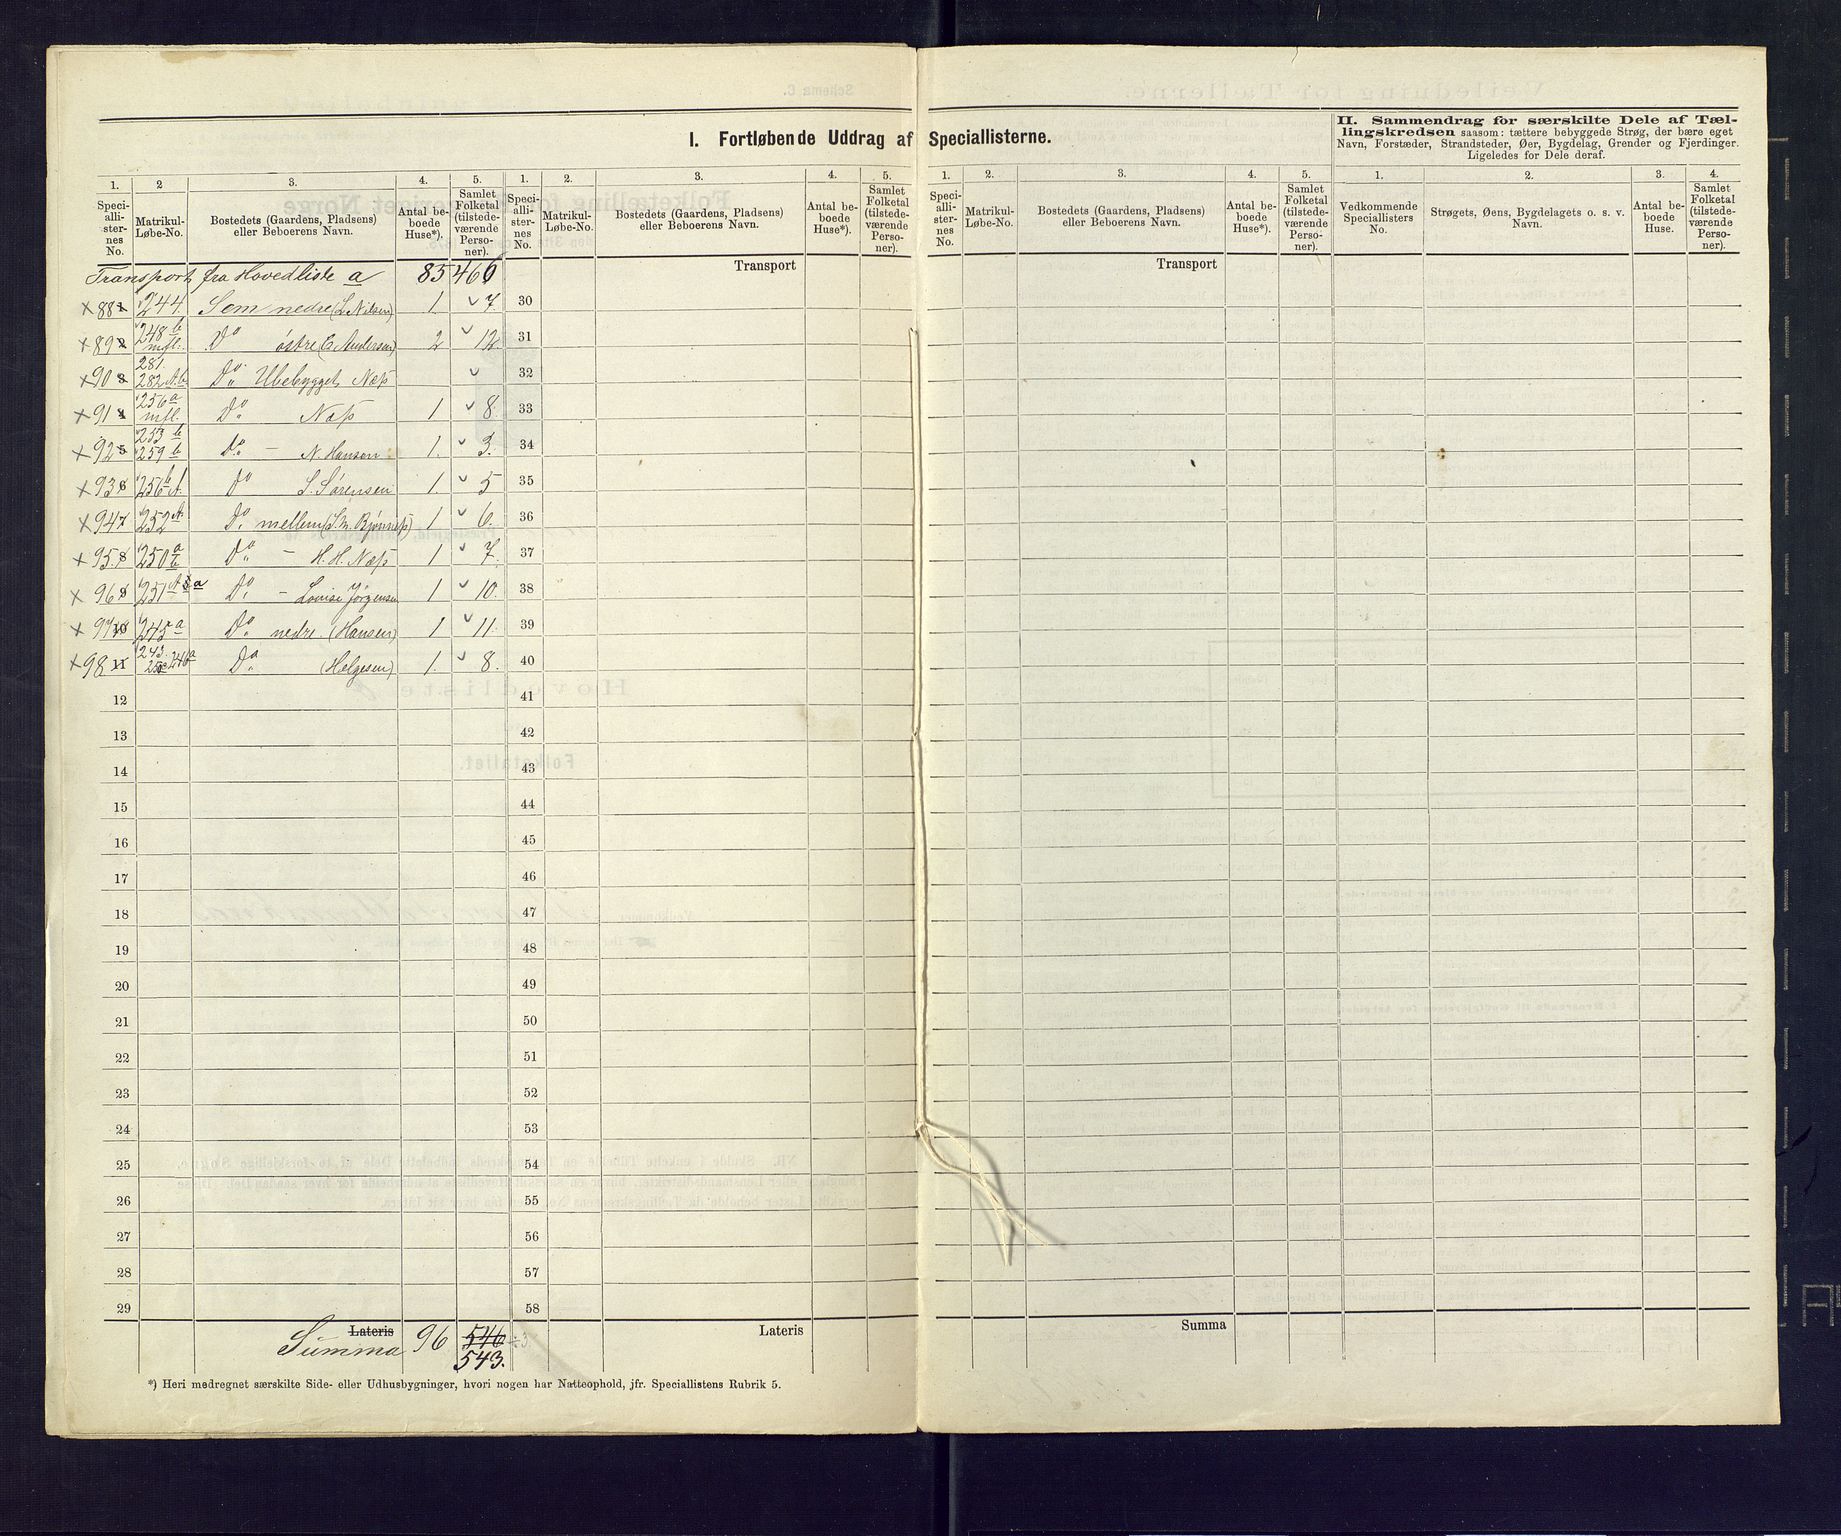 I. Fortløbende Uddrag af Speciallisterne.
II. Sammendrag for særskilte Dele af Tæl-
lingskredsen saasom: tættere bebyggede Strøg, der bære eget
Navn, Forstæder, Strandsteder, Øer, Bygdelag, Grender og Fjerdinger.
Ligeledes for Dele deraf.
1. 2 3. 4. 5. 1. 2. 3. 4. 5. 1. 2. 3. 4. 5. 1. 2. 3. 4.
Speci-alli-ster-nes No. Matrikul-Løbe-No. Bostedets (Gaardens, Pladsens) eller Beboerens Navn. Antal be-boede Huse*). Samlet Folketal (tilstede-værende Perso-ner).
Speci-alli-ster-nes No. Matrikul-Løbe-No. Bostedets (Gaardens, Pladsens) eller Beboerens Navn. Antal be-boede Huse*). Samlet Folketal (tilstede-værende Perso-ner).
Speci-alli-ster-nes No. Matrikul-Løbe-No. Bostedets (Gaardens, Pladsens) eller Beboerens Navn. Antal be-boede Huse*). Samlet Folketal (tilstede-værende Perso-ner).
Vedkommende Speciallisters No. Strøgets, Øens, Bygdelagets o. s. v. Navn. Antal be-boede Huse. Samlet Folketal (tilstede-værende Perso-ner).
Transport fra Hovedliste a 85 466 Transport Transport
×88 1 244. Sem nedre (L. Nilsen) 1. 7. 30
×89 2 248 b mfl. Do østre (E. Andersen) 2 12. 31
×90 3 281. 282 A.b Do Ubebygget Næs 32
×91 4 256 a mfl. Do Næs 1 8. 33
×92 5 253 b 259 b Do – N. Hansen 1. 3. 34
×93 6 256 b A. Do S. Sørensen 1. 5 35
×94 7 252 A. Do mellem (S. M. Bjønnes) 1 6. 36
×95. 8 250 a b Do – H. H. Næs 1 7. 37
×96 9 251 A a Do – Lovise Jørgensen 1 10. 38
×97 10 245 a Do nedre (Hansen) 1 11. 39
×98 11 243. 246 a Do (Helgesen) 1. 8. 40
12 41
13 42
14 43
15 44
16 45
17 46
18 47
19 48
20 49
21 50
22 51
23 52
24 53
25 54
26 55
27 56
28 57
29 58
Lateris Summa 96 546 ÷3. Lateris Summa
543.
*) Heri medregnet særskilte Side- eller Udhusbygninger, hvori nogen har Natteophold, jfr. Speciallistens Rubrik 5.